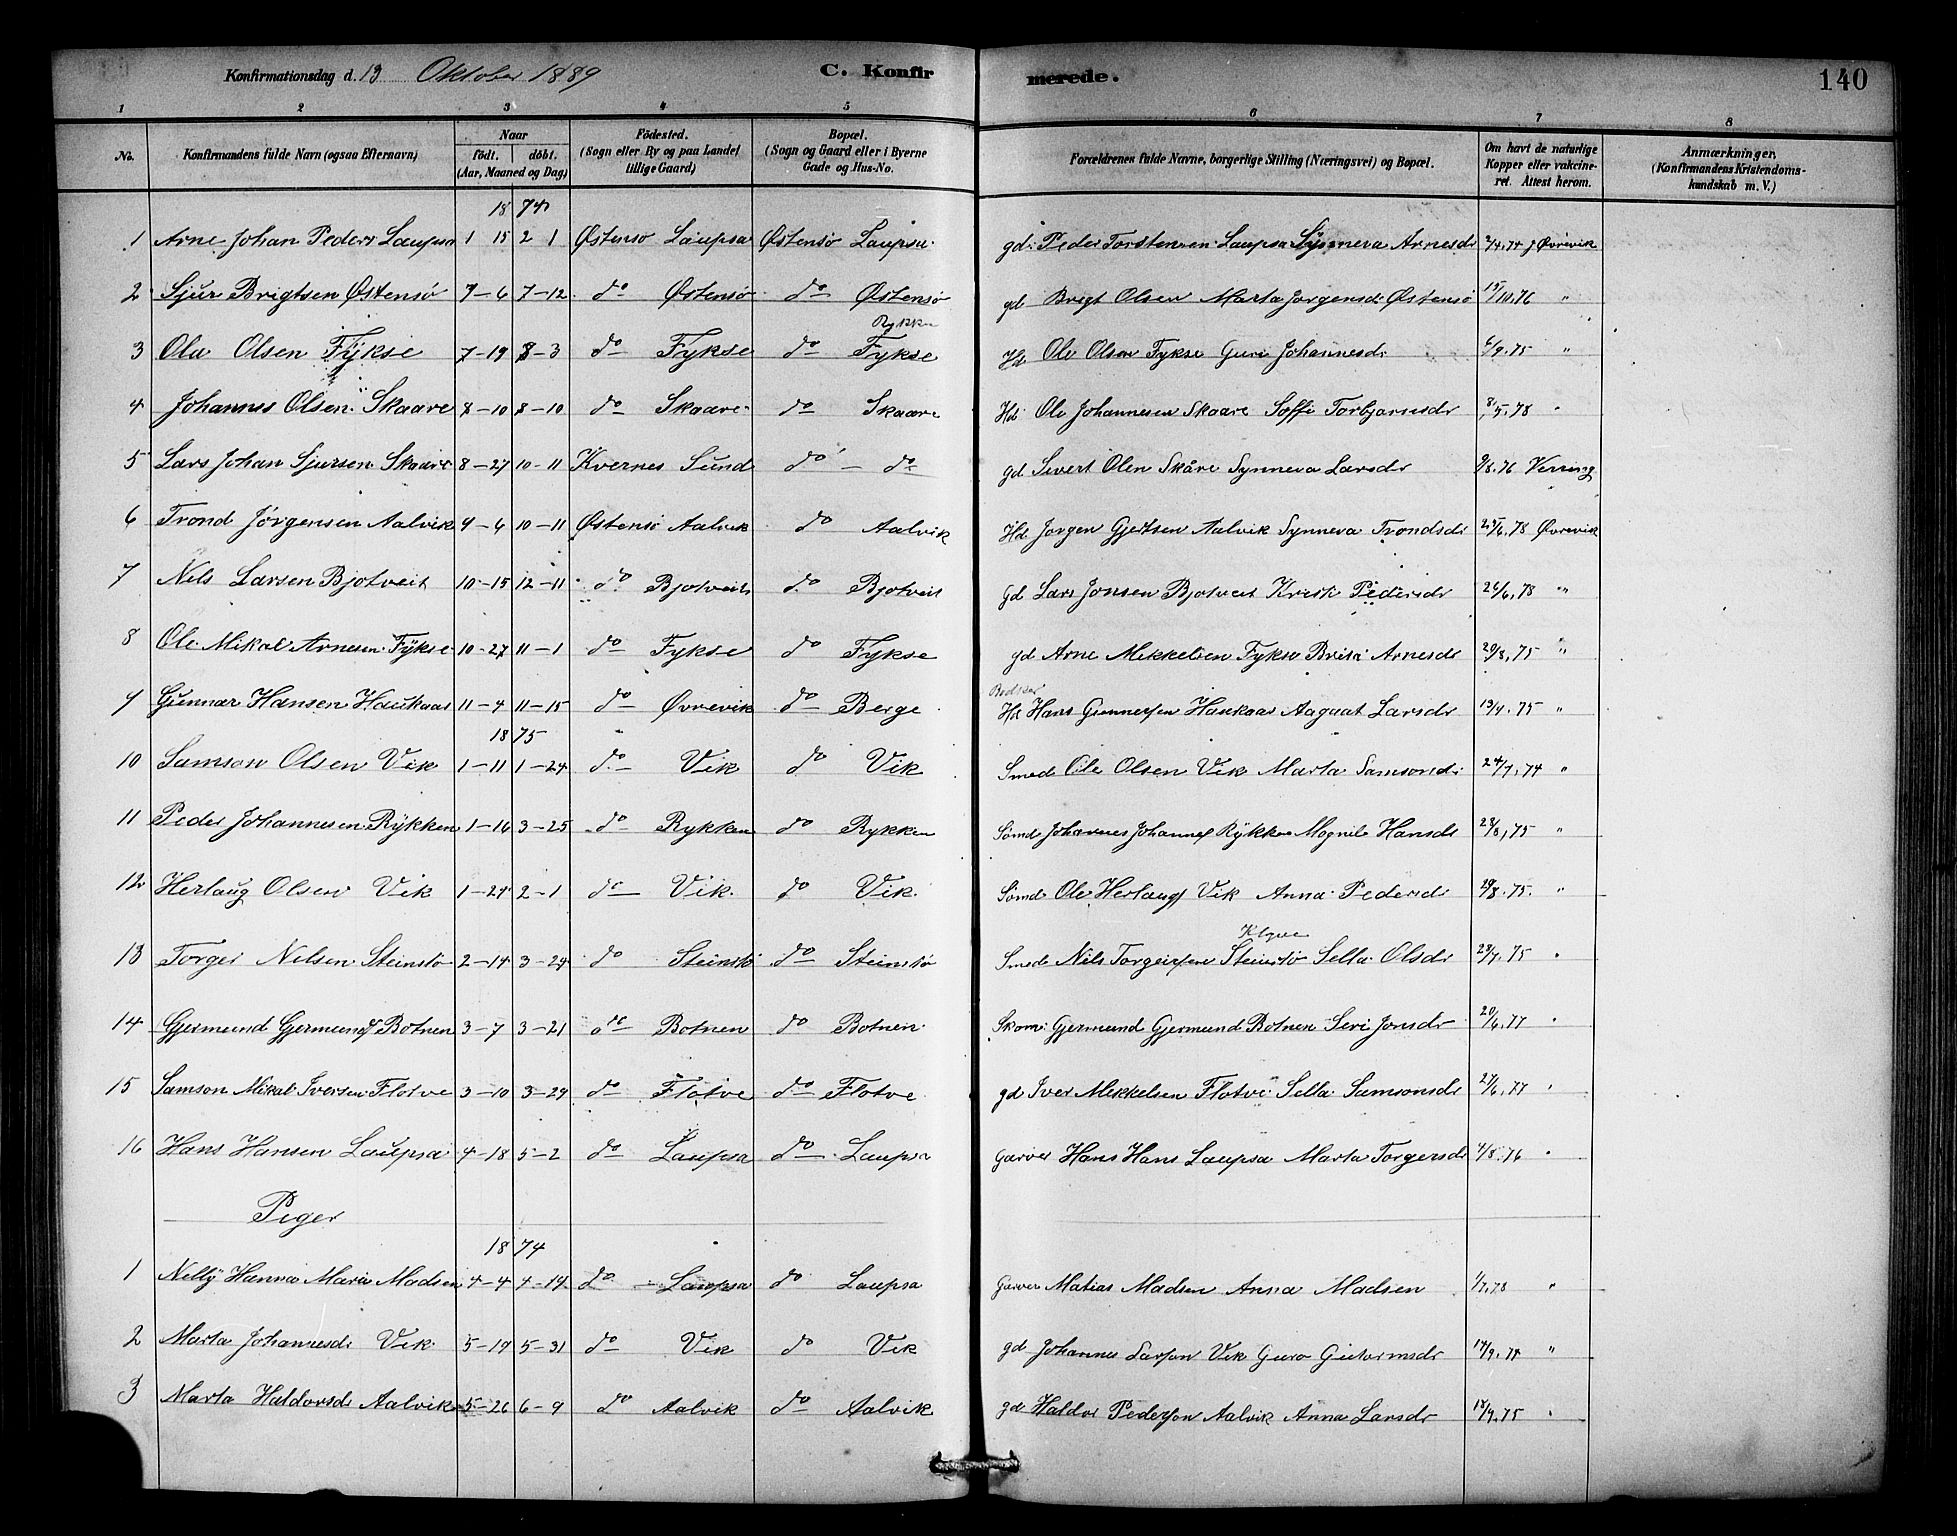 Konfirmationsdag d. 13 Oktober 1889 C. Konfirmerede. 140
1 2 3 4 5 6 7 8
No. Konfirmandens fulde Navn (ogsaa Efternavn) Naar födt. döbt. (Aar, Maaned og Dag) Födested. (Sogn eller By og paa Landet tillige Gaard) Bopæl. (Sogn og Gaard eller i Byerne Gade og Hus-No. Forældrenes fulde Navne, borgerlige Stilling (Næringsvei) og Bopæl. Om havt de naturlige Kopper eller vakcineret. Attest herom. Anmærkninger. (Konfirmandens Kristendomskundskab m. V.)
18 74
1 Arne Johan Peders Laupsa 1 15 2 1 Østensø Laupsa Østensø Laupsa gd. Peder Torstensen Laupsa Synneva Arnesdr 2/4.74 J Øvrevik
2 Sjur Brigtsen Østensø 7-6 7-12 do Østensø do Østensø gd Brigt Olsen Marta Jorgensdr Østensø 15/10.76 "
Rykken
3 Ola Olsen Fykse 7-19 8-3 do Fykse do Fykse Hd Ole Olsen Fykse Guri Johannesdr 6/9.75 "
4 Johannes Olsen Skaare 8-10 8-10 do Skaare do Skaare Hd Ole Johannesen Skaare Soffi Torbjornsdr 8/5.78 "
5 Lars Johan Sjursen Skaare 8-27 10-11 Kvernes Sund do - do gd Sivert Olen Skåre Synneva Larsdr 9/8.76
6 Trond Jørgensen Aalvik 9-6 10-11 Østensø Aalvik do Aalvik Hd Jorgen Gjertsen Aalvik Synneva Trondsdr 25/6.78 Øvrevik
7 Nels Larsen Bjotveit 10-15 12-11 do Bjotveit do Bjotveit gd Lars Jonsen Bjotveit Kristi Pedersdr 26/6.78 "
8 Ole Mikal Arnesen Fykse 10-27 11-1 do Fykse do Fykse gd Arne Mikkelsen Fykse Brita Arnesdr 20/8.75 "
9 Gunnar Hansen Haukaas 11-4 11-15 do Øvrevik do Berge Hd Hans Gunnersen Haukaas Aagaat Larsdr 19/9.75 "
18 75
10 Samson Olsen Vik 1-11 1-24 do Vik do Vik Smed Ole Olsen Vik Marta Samsonsdr 24/7.74 "
11 Peder Johannesen Rykken 1-16 3-25 do Rykken do Rykken Sømd Johannes Johannes Rykken Mognil Hansdr 28/8.75 "
12 Herlaug Olsen Vik 1-24 2-1 do Vik do Vik Sømd Ole Herlaugs Vik Anna Pedersdr 29/8.75. "
13 Torger Nilsen Steinstø 2-14 3-24 do Steinstø do Steinstø Smed Nils Torgersen Steinstø Sella Olsdr 23/7.75 "
14 Gjermund Gjermunds Botnen 3-7 3-21 do Botnen do Botnen Skom. Gjermund Gjermund Botnen Seri Jonsdr 20/6.77 "
15 Samson Mikal Iversen Flotve 3-10 3-29 do Flotve do Flotve gd Iver Mikkelsen Flotve Sella Samsonsdr 27/6.77 "
16 Hans Hansen Laupsa 4-18 5-2 do Laupsa do Laupsa Garver Hans Hans Laupsa Marta Torgersdr 4/8.76 "
Piger
18 74
1 Nelly Hanna Maria Madsen 4-4 4-19 do Laupsa do Laupsa Garver Matias Madsen Anna Madsen 1/7.78 "
2 Marta Johannesdr Vik 5-19 5-31 do Vik do Vik gd Johannes Larsen Vik Guro Gutormsdr 17/9.74 "
3 Marta Haldorsdr Aalvik 5-26 6-9 do Aalvik do Aalvik gd Haldor Pedersen Aalvik Anna Larsdr 18/9.75 "